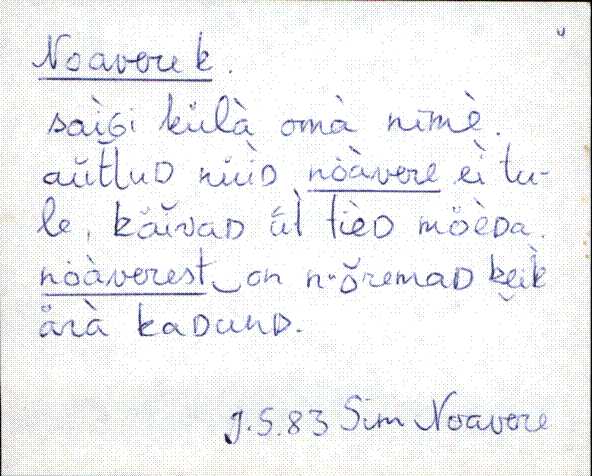 Noavere k.
saìGi kùlà omà nìmè.
aŭtluD nüìD nòàvere eì tu-
le, käĭvaD ǟl tìeD möèDa.
nòàverest‿on nŏremaD kẹik
ärà kaDunD.
J.S.83 Sim Noavere